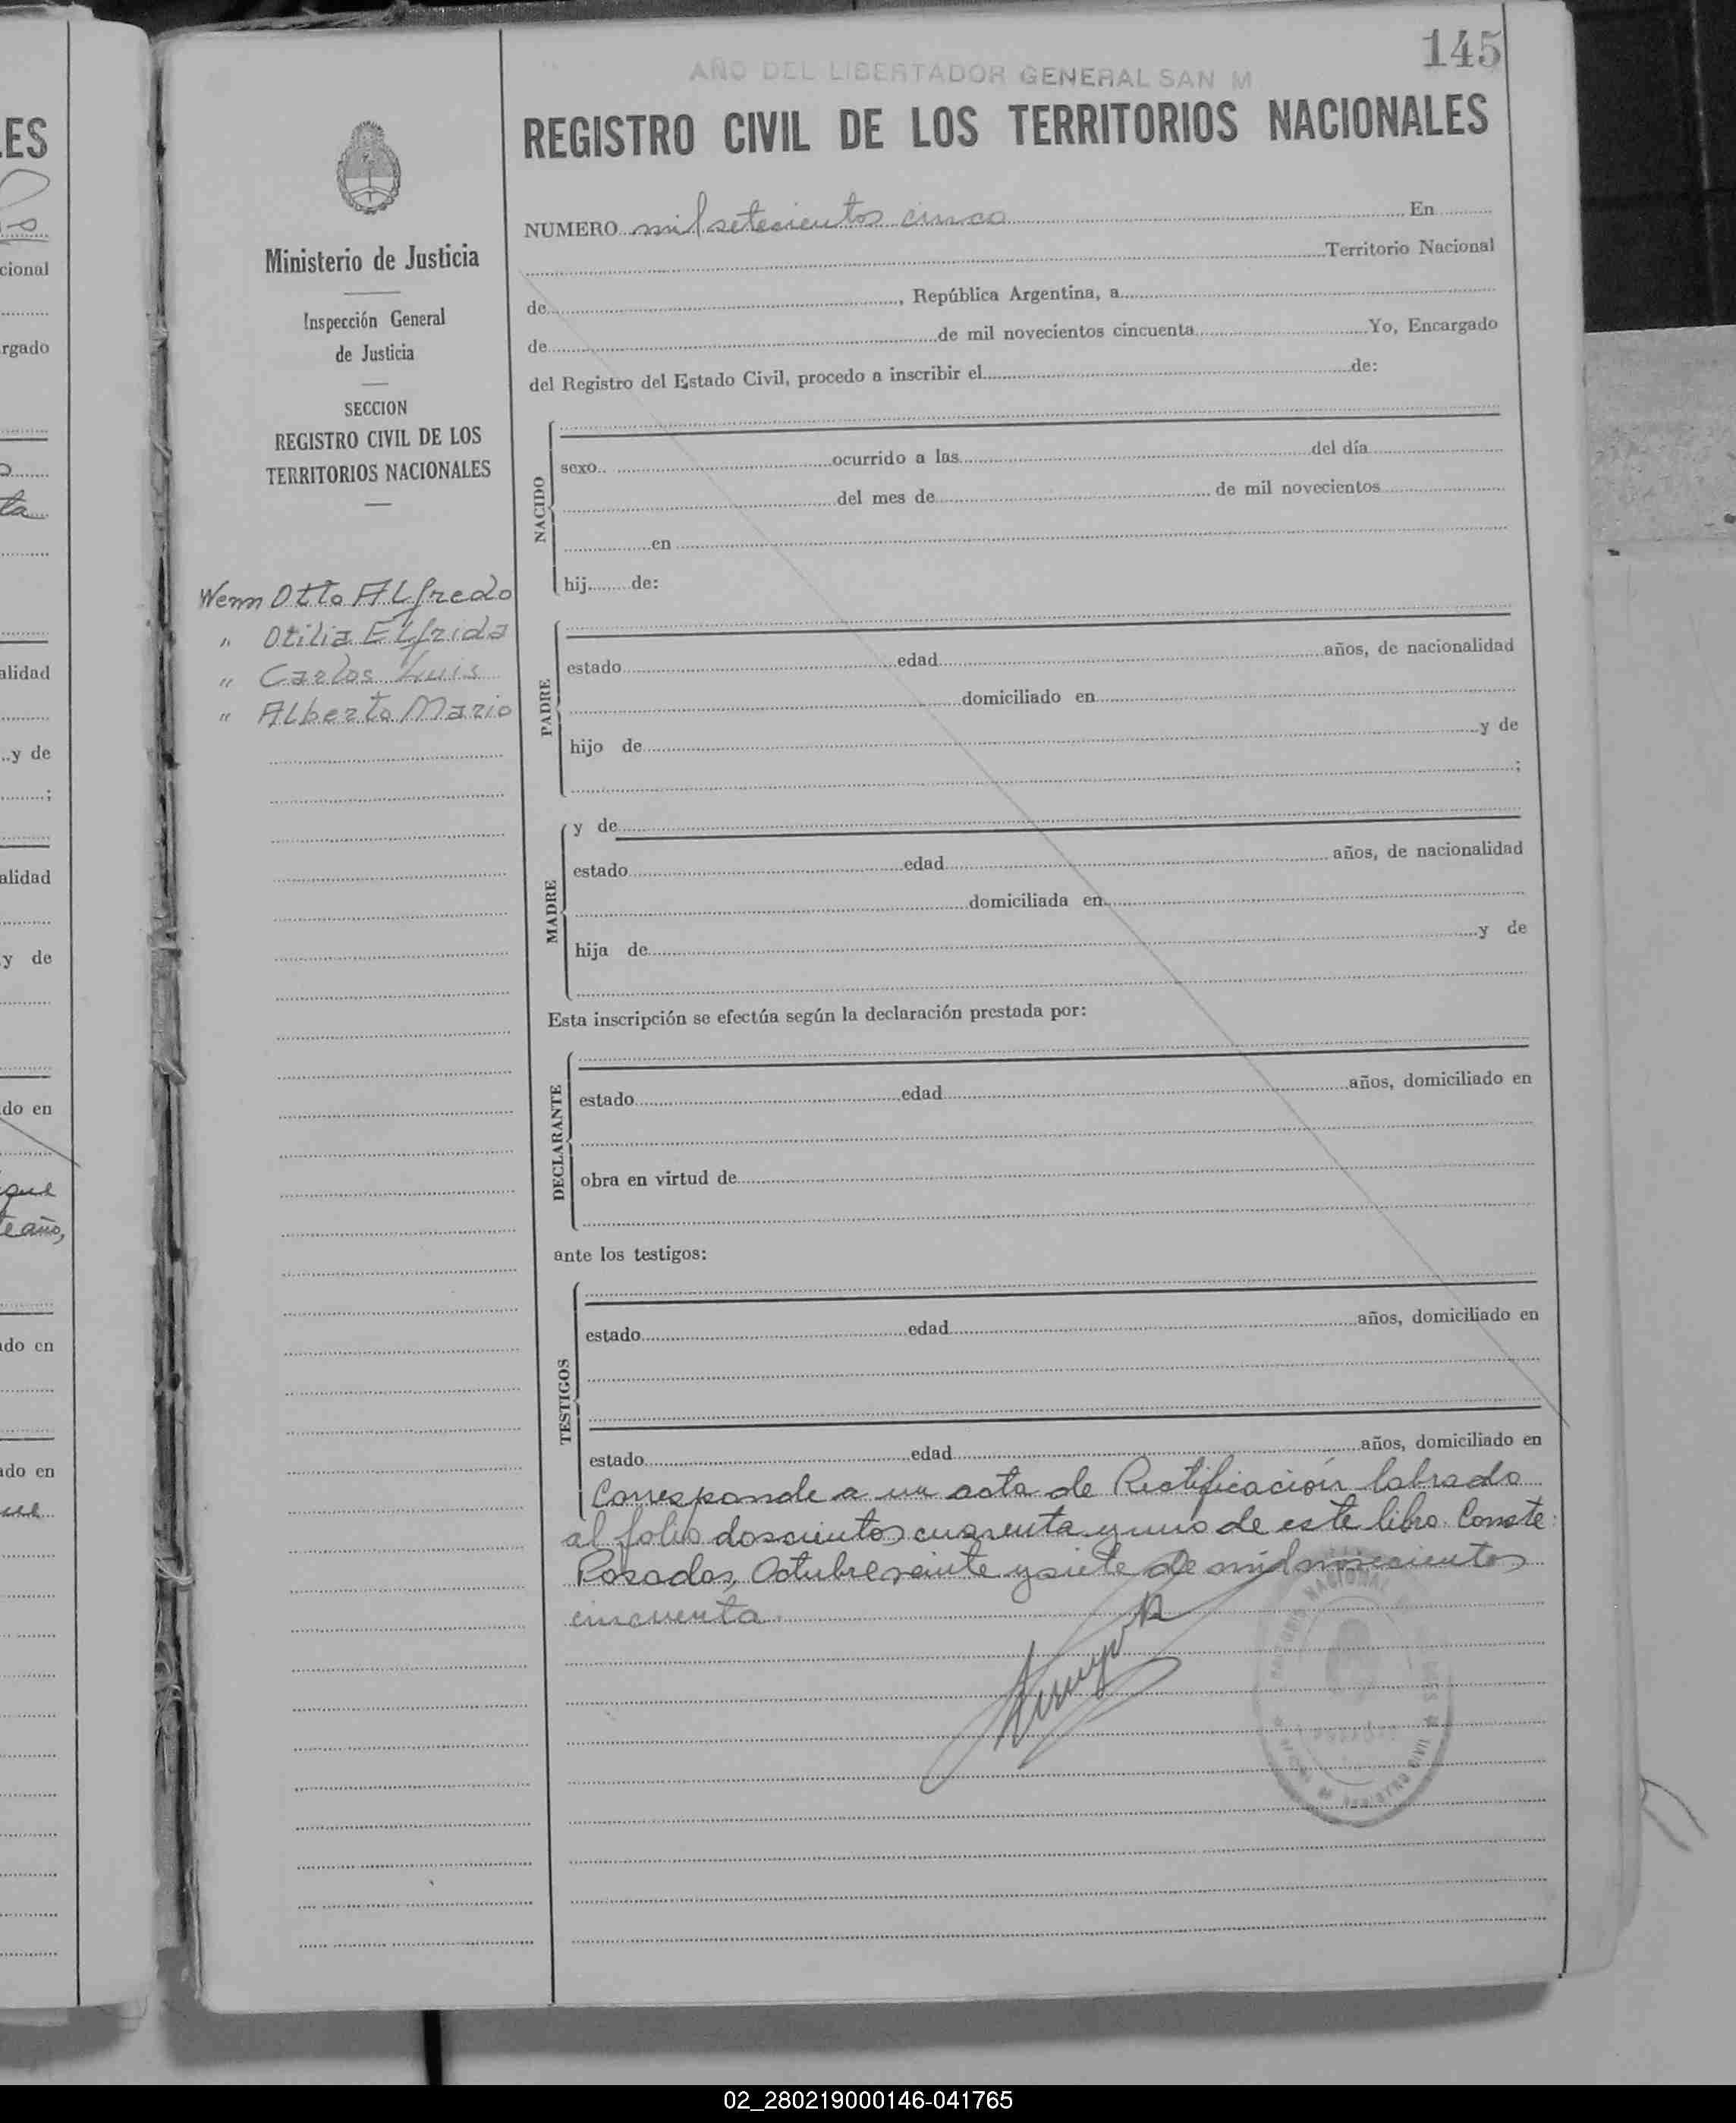 LES
cional
rgado
ta
alidad
y de
;
alidad
y de
do en
que
te año,
ado en
ado en
145
AÑO DEL LIBERTADOR GENERAL SAN M
REGISTRO CIVIL DE LOS TERRITORIOS NACIONALES
Ministerio de Justicia
Inspección General
de Justicia
SECCION
REGISTRO CIVIL DE LOS
TERRITORIOS NACIONALES
Wenn Otto ALfredo
" Otilia ELfrida
" Carlos Luis
" ALberto Mario
NUMERO mil setecientos cinco En
Territorio Nacional
de , República Argentina, a
de de mil novecientos cincuenta Yo, Encargado
del Registro del Estado Civil, procedo a inscribir el de:
NACIDO
sexo ocurrido a las del día
del mes de de mil novecientos
en
hij de:
PADRE
estado edad años, de nacionalidad
domiciliado en
hijo de y de
;
MADRE
y de
estado edad años, de nacionalidad
domiciliada en
hija de y de
Esta inscripción se efectúa según la declaración prestada por:
DECLARANTE
estado edad años, domiciliado en
obra en virtud de
ante los testigos:
TESTIGOS
estado edad años, domiciliado en
estado edad años, domiciliado en
Corresponde a un acta de Rectificación labrada
al folio doscientos cuarenta y uno de este libro. Conste:
Posadas, Octubre veinte y siete de mil novecientos
cincuenta
NACIONAL
REGISTRO CIVIL
02_280219000146-041765